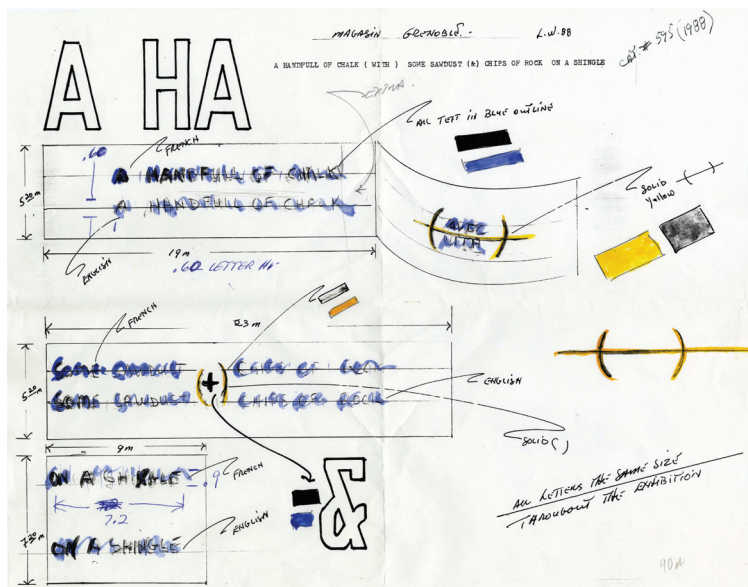 MAGASIN GRENOBLE.- L.W. 88
CAT. # 595 (1988)
A HANDFULL OF CHALK ( WITH ) SOME SAWDUST (&) CHIPS OF ROCK ON A SHINGLE
A HA
EXTRA.
ALL TEXT IN BLUE OUTLINE
FRENCH
.60
A HANDFULL OF CHALK
A HANDFULL OF CHALK
5.20 m
ENGLISH
19 m
.60 LETTER HT
(AVEC
WITH)
SOLID
YELLOW ( )
FRENCH
23 m
SOME SAWDUST (+) CHIPS OF ROCK
SOME SAWDUST CHIPS OF ROCK
5.20 m
ENGLISH
SOLID ( )
9 m
ON A SHINGLE
FRENCH
.9
7.2
ON A SHINGLE
ENGLISH
7.20 m
&
ALL LETTERS THE SAME SIZE
THROUGHOUT THE EXHIBITION